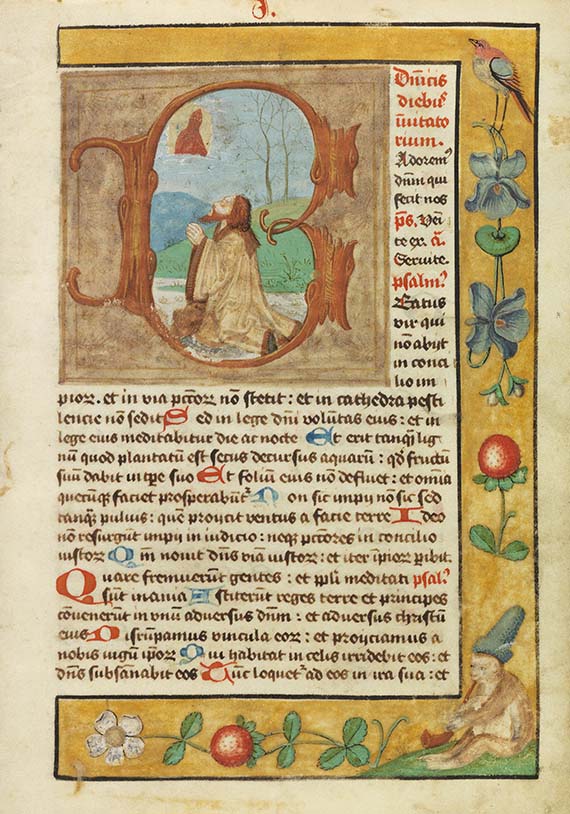 J.
Dn̄icis
diebus
īuitato
rium.
Adorem᷒
dn̄m qui
fecit nos
p̄s. Veni
te ex. a.
Seruite.
psalm᷒
B Eatus
vir qui
nō abijt
in conci
lio im
pior. et in via pctōr nō stetit : et in cathedra pesti
lencie nō sedit Sed in lege dn̄i volūtas eius : et in
lege eius meditabitur die ac nocte Et erit tanq̄ lig
nū quod plantatū est secus decursus aquarū : qd̄ fructū
suū dabit in tp̄e suo Et foliū eius non defluet : et omīa
quecūq̄ faciet prosperabūt᷑ Non sic impij nō sic sed
tanq̄ puluis : quē proyicit ventus a facie terre Ideo
nō resurgūt impij in iudicio : neq̄ pctōres in concilio
iustor Qm̄ nouit dn̄s viam iustor : et iter īpior peribit.
Quare fremuerūt gentes : et ppl̄i meditati psal᷒
sūt inania Astiterūt reges terre et principes
cōuenerūt in vnū aduersus dn̄m : et aduersus christū
eius Disrūpamus vincula eor : et proyciamus a
nobis iugū ip̄or Qui habitat in celis irridebit eos : et
dn̄s subsānabit eos Tūc loquet᷑ ad eos in ira sua : et